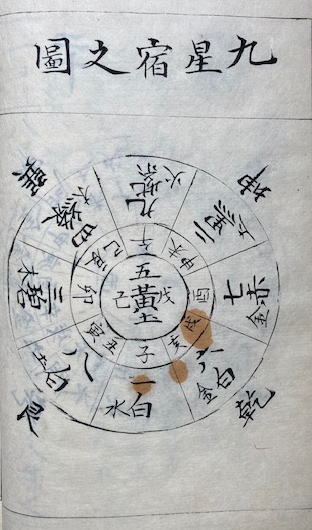 九星宿之圖
巽
坤
艮
乾
九紫火
二黒土
七赤金
六白金
一白水
八白土
三碧木
四緑木
午
未申
酉
戌亥
子
丑寅
卯
辰巳
五黄土
戊
己